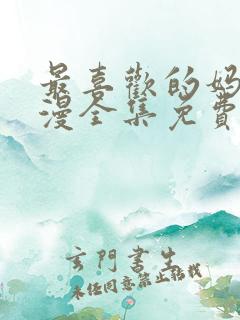 最喜歡的媽
漫全集免費
玄門書生
未經同意禁止轉載